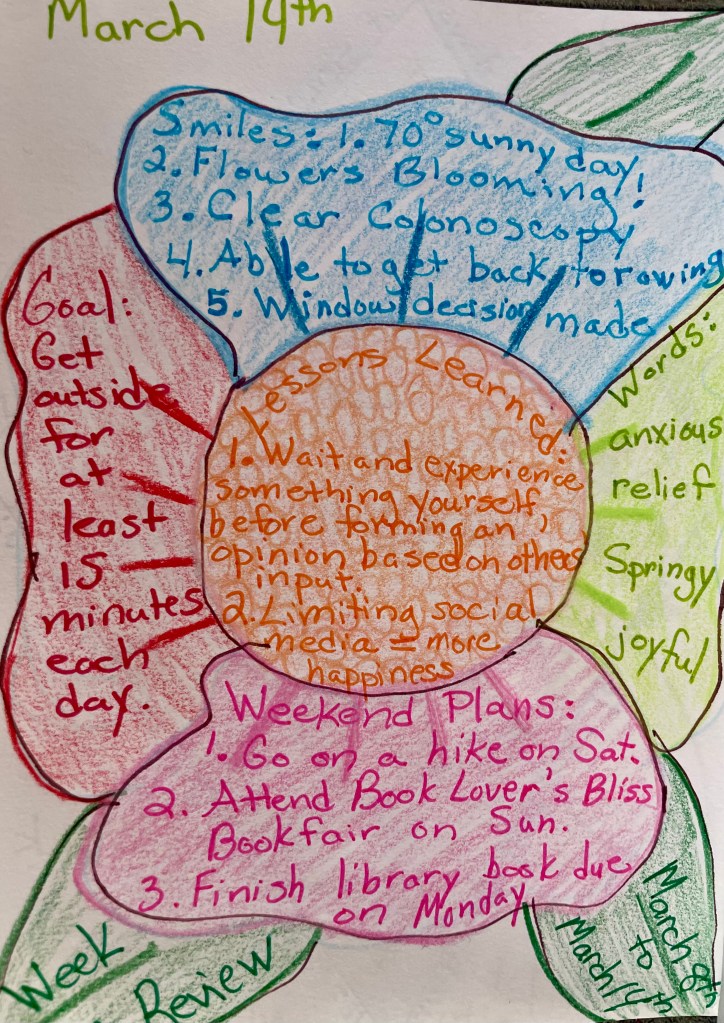 March 14th
Smiles: 1. 70° sunny day
2. Flowers Blooming!
3. Clear Colonoscopy
4. Able to get back to rowing
5. Window decision made
Goal:
Get
outside
for
at
least
15
minutes
each
day.
Lessons Learned:
1. Wait and experience
something yourself
before forming an
opinion based on others'
input.
2. Limiting social
media = more
happiness
Words:
anxious
relief
Springy
joyful
Weekend Plans:
1. Go on a hike on Sat.
2. Attend Book Lover's Bliss
Bookfair on Sun.
3. Finish library book due
on Monday
Week
Review
March 8th
to
March 14th